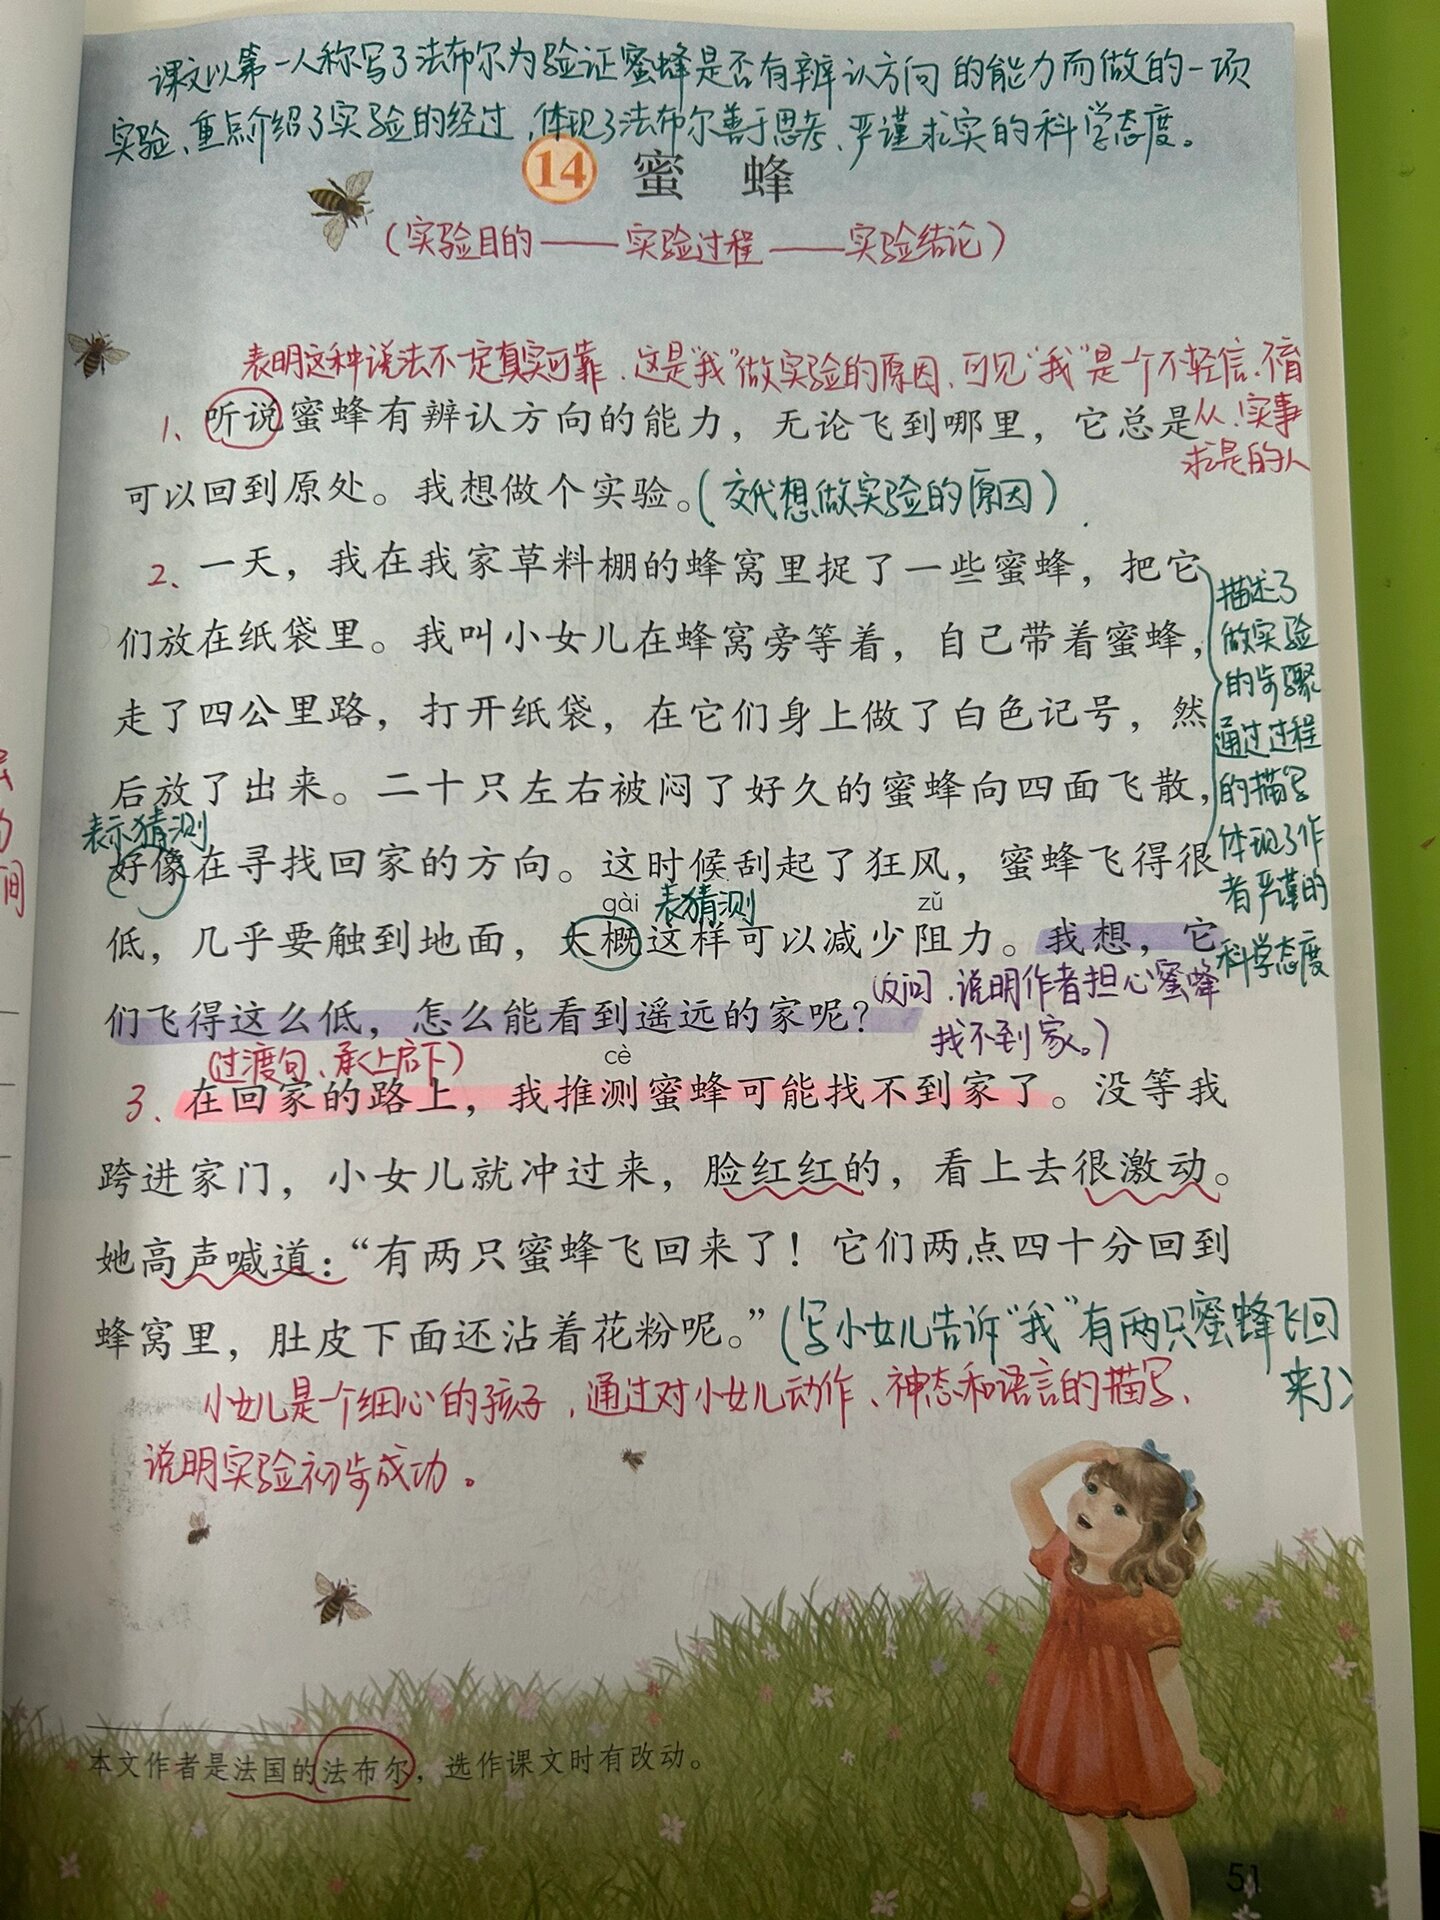 课文以第一人称写了法布尔为验证蜜蜂是否有辨认方向的能力而做的一项
实验、重点介绍了实验的经过，体现了法布尔善于思考、严谨求实的科学态度。
14 蜜蜂
(实验目的——实验过程——实验结论)
表明这种说法不一定真实可靠，这是“我”做实验的原因，可见“我”是一个不轻信、不盲
从、实事
求是的人
1、听说蜜蜂有辨认方向的能力，无论飞到哪里，它总是
可以回到原处。我想做个实验。(交代想做实验的原因)
2、一天，我在我家草料棚的蜂窝里捉了一些蜜蜂，把它
们放在纸袋里。我叫小女儿在蜂窝旁等着，自己带着蜜蜂，
走了四公里路，打开纸袋，在它们身上做了白色记号，然
后放了出来。二十只左右被闷了好久的蜜蜂向四面飞散，
表示猜测
好像在寻找回家的方向。这时候刮起了狂风，蜜蜂飞得很
gài 表猜测 zǔ
低，几乎要触到地面，大概这样可以减少阻力。我想，它
们飞得这么低，怎么能看到遥远的家呢？
描述了
做实验
的步骤
通过过程
的描写
体现了作
者严谨的
科学态度
(反问，说明作者担心蜜蜂
找不到家。)
(过渡句、承上启下)
cè
3、在回家的路上，我推测蜜蜂可能找不到家了。没等我
跨进家门，小女儿就冲过来，脸红红的，看上去很激动。
她高声喊道：“有两只蜜蜂飞回来了！它们两点四十分回到
蜂窝里，肚皮下面还沾着花粉呢。”(写小女儿告诉“我”有两只蜜蜂飞回
来了)
小女儿是个细心的孩子，通过对小女儿动作、神态和语言的描写、
说明实验初步成功。
本文作者是法国的法布尔，选作课文时有改动。
51